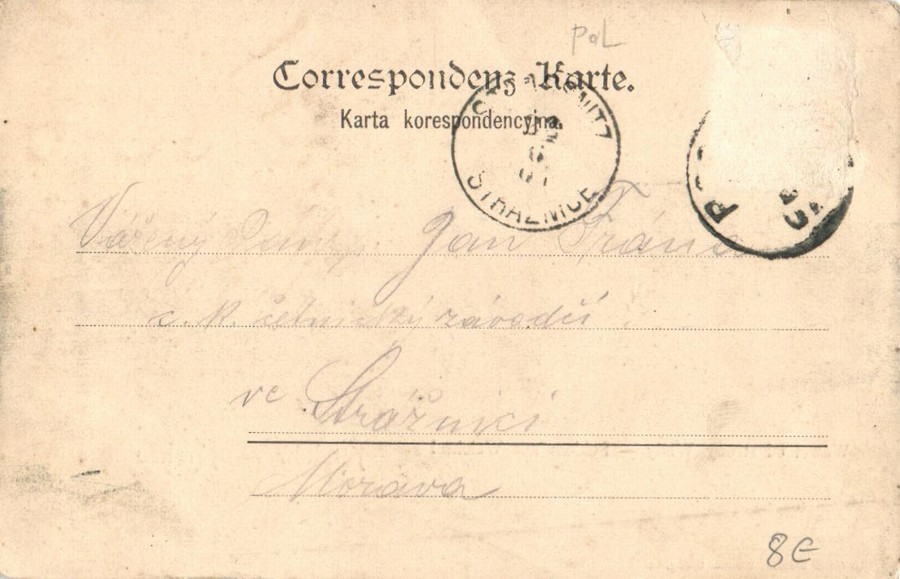 PoL
Correspondenz-Karte.
Karta korespondencyjna.
STRAŽNICE
Vážený Pan Jan Frána
c. k. četnický závodčí
ve Strážnici
Morava
8€